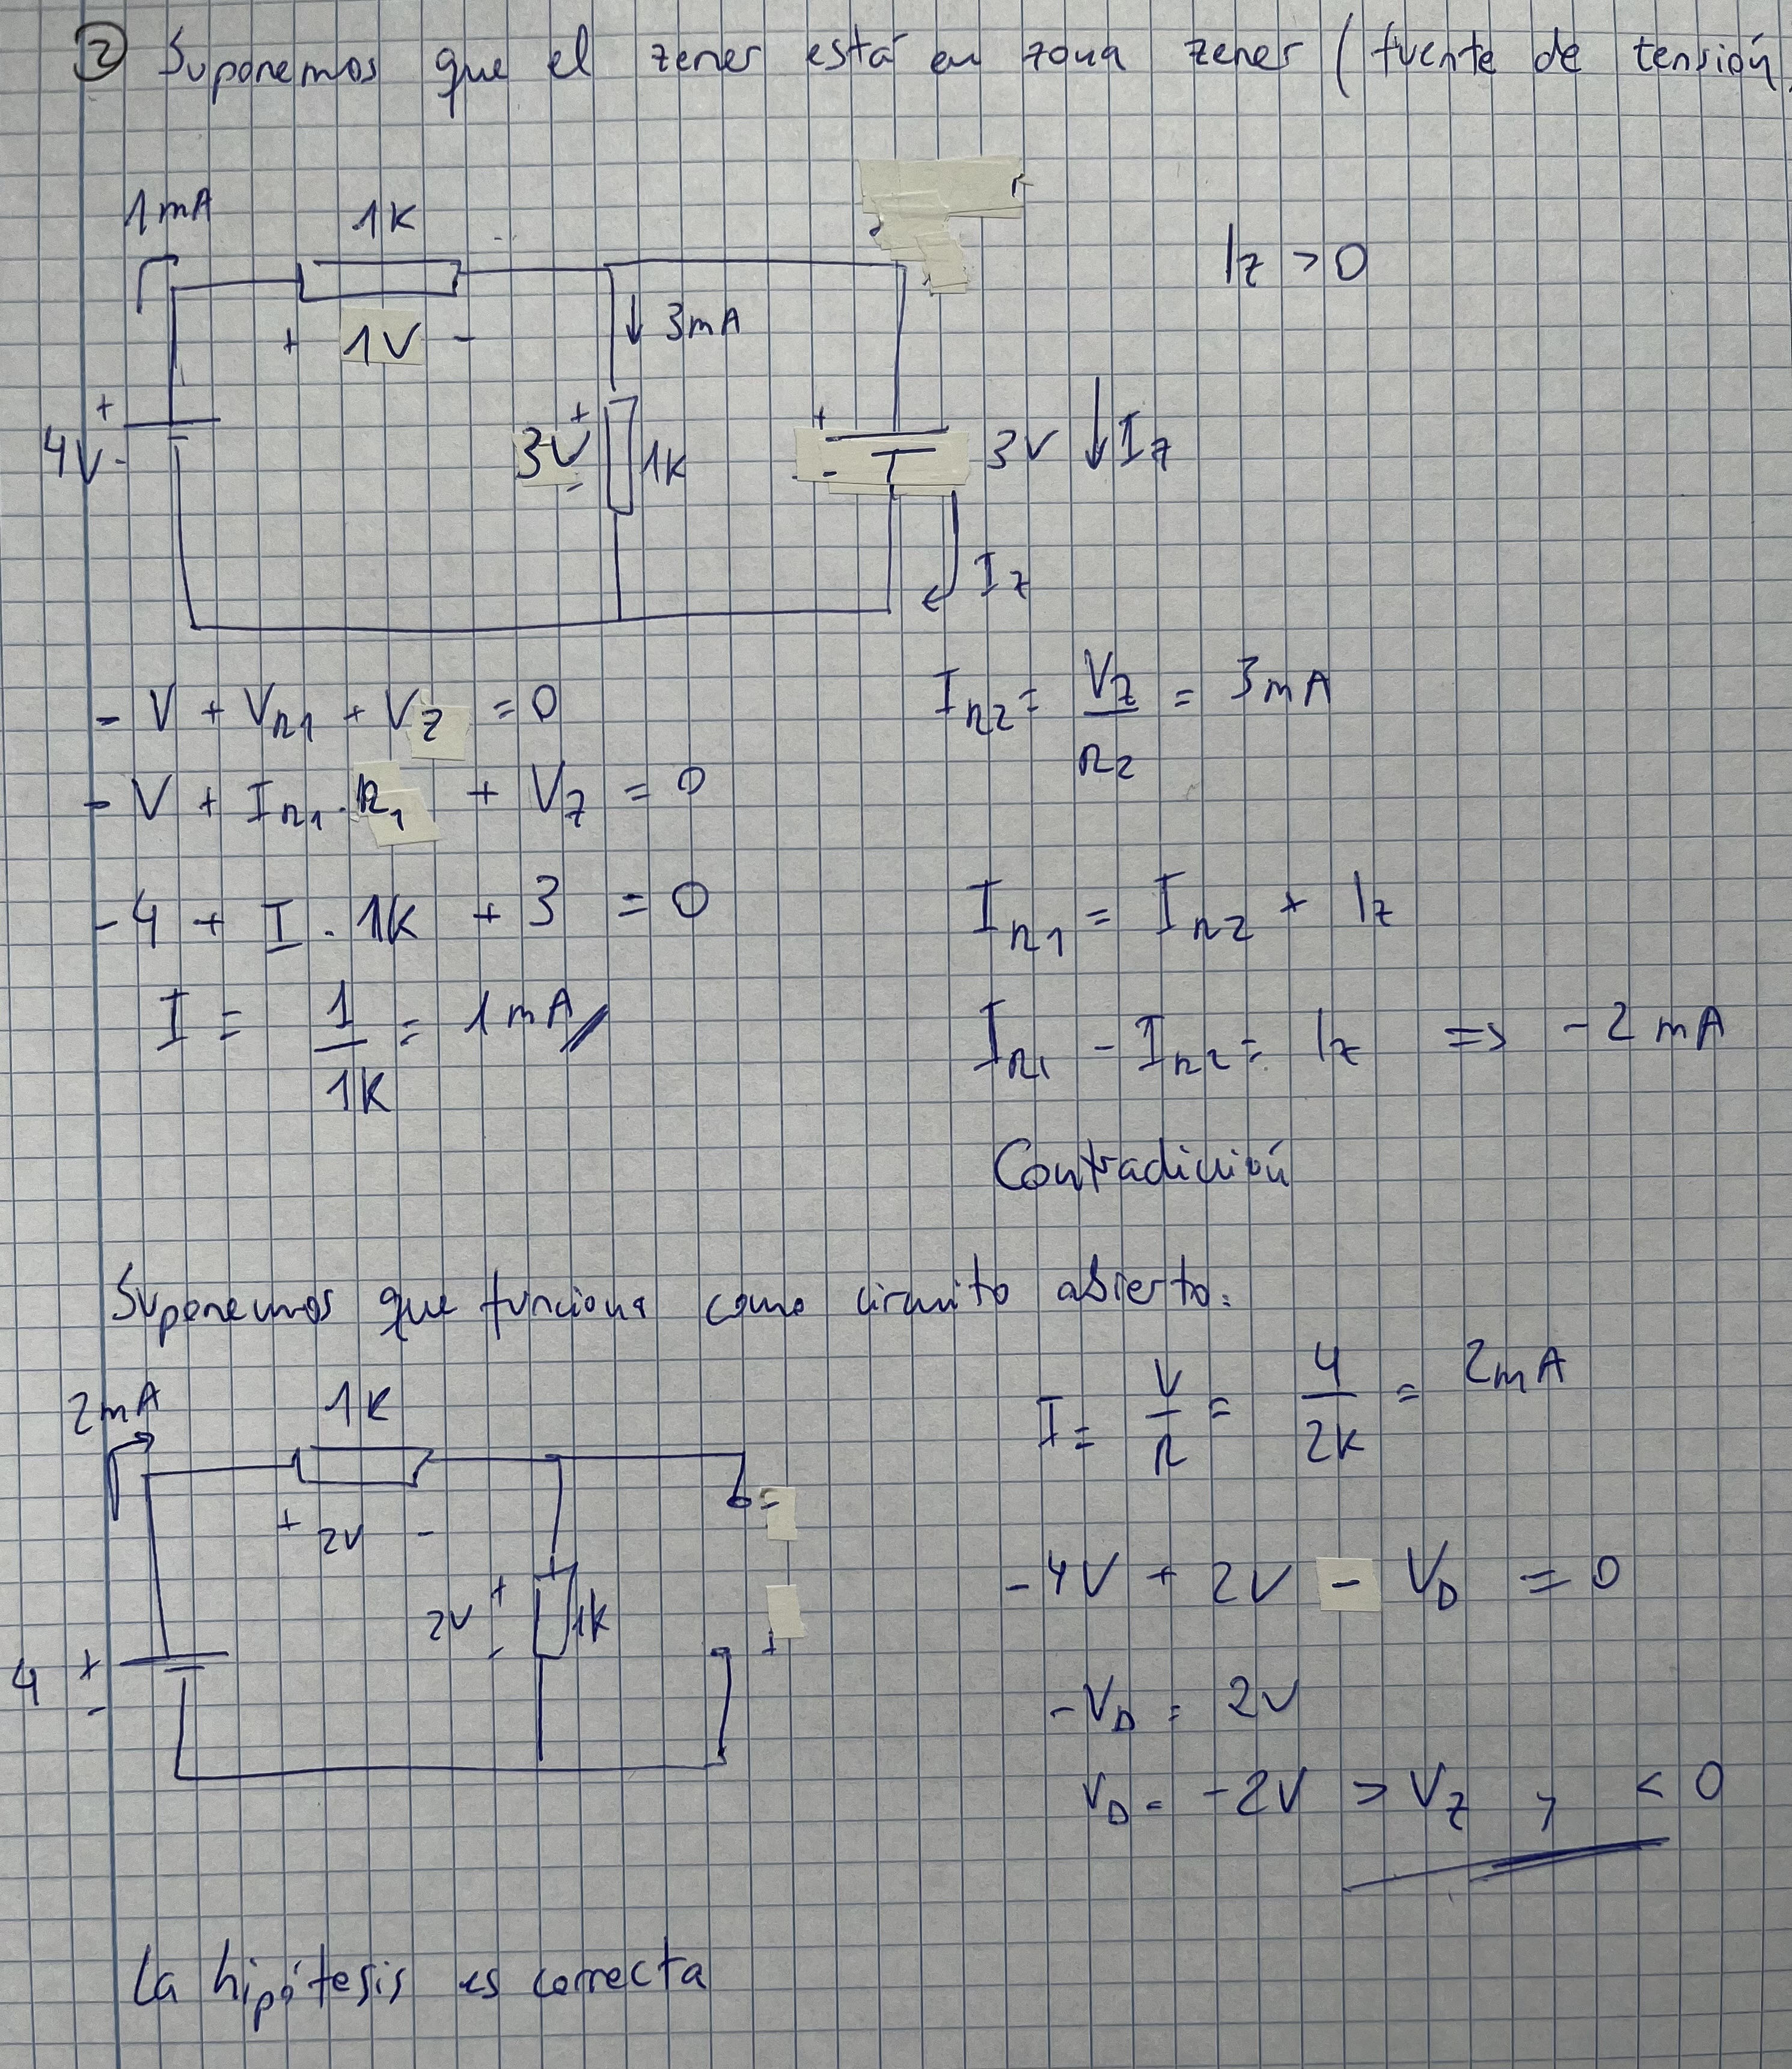 ② Suponemos que el zener está en zona zener (fuente de tensión)
1mA
1K
Iz > 0
+ 1V -
↓ 3mA
+
4V
-
3V
+
-
1K
+
-
3V ↓ Iz
Iz
- V + VR1 + Vz = 0
IR2 = Vz/R2 = 3mA
- V + IR1 . R1 + Vz = 0
- 4 + I . 1K + 3 = 0
IR1 = IR2 + Iz
I = 1/1K = 1mA
IR1 - IR2 = Iz => -2mA
Contradicción
Suponemos que funciona como circuito abierto.
2mA
1K
I = V/R = 4/2K = 2mA
+ 2V -
-
2V
+
-
1K
+
-4V + 2V - VD = 0
4
+
-
-VD = 2V
VD = -2V > Vz , < 0
La hipótesis es correcta